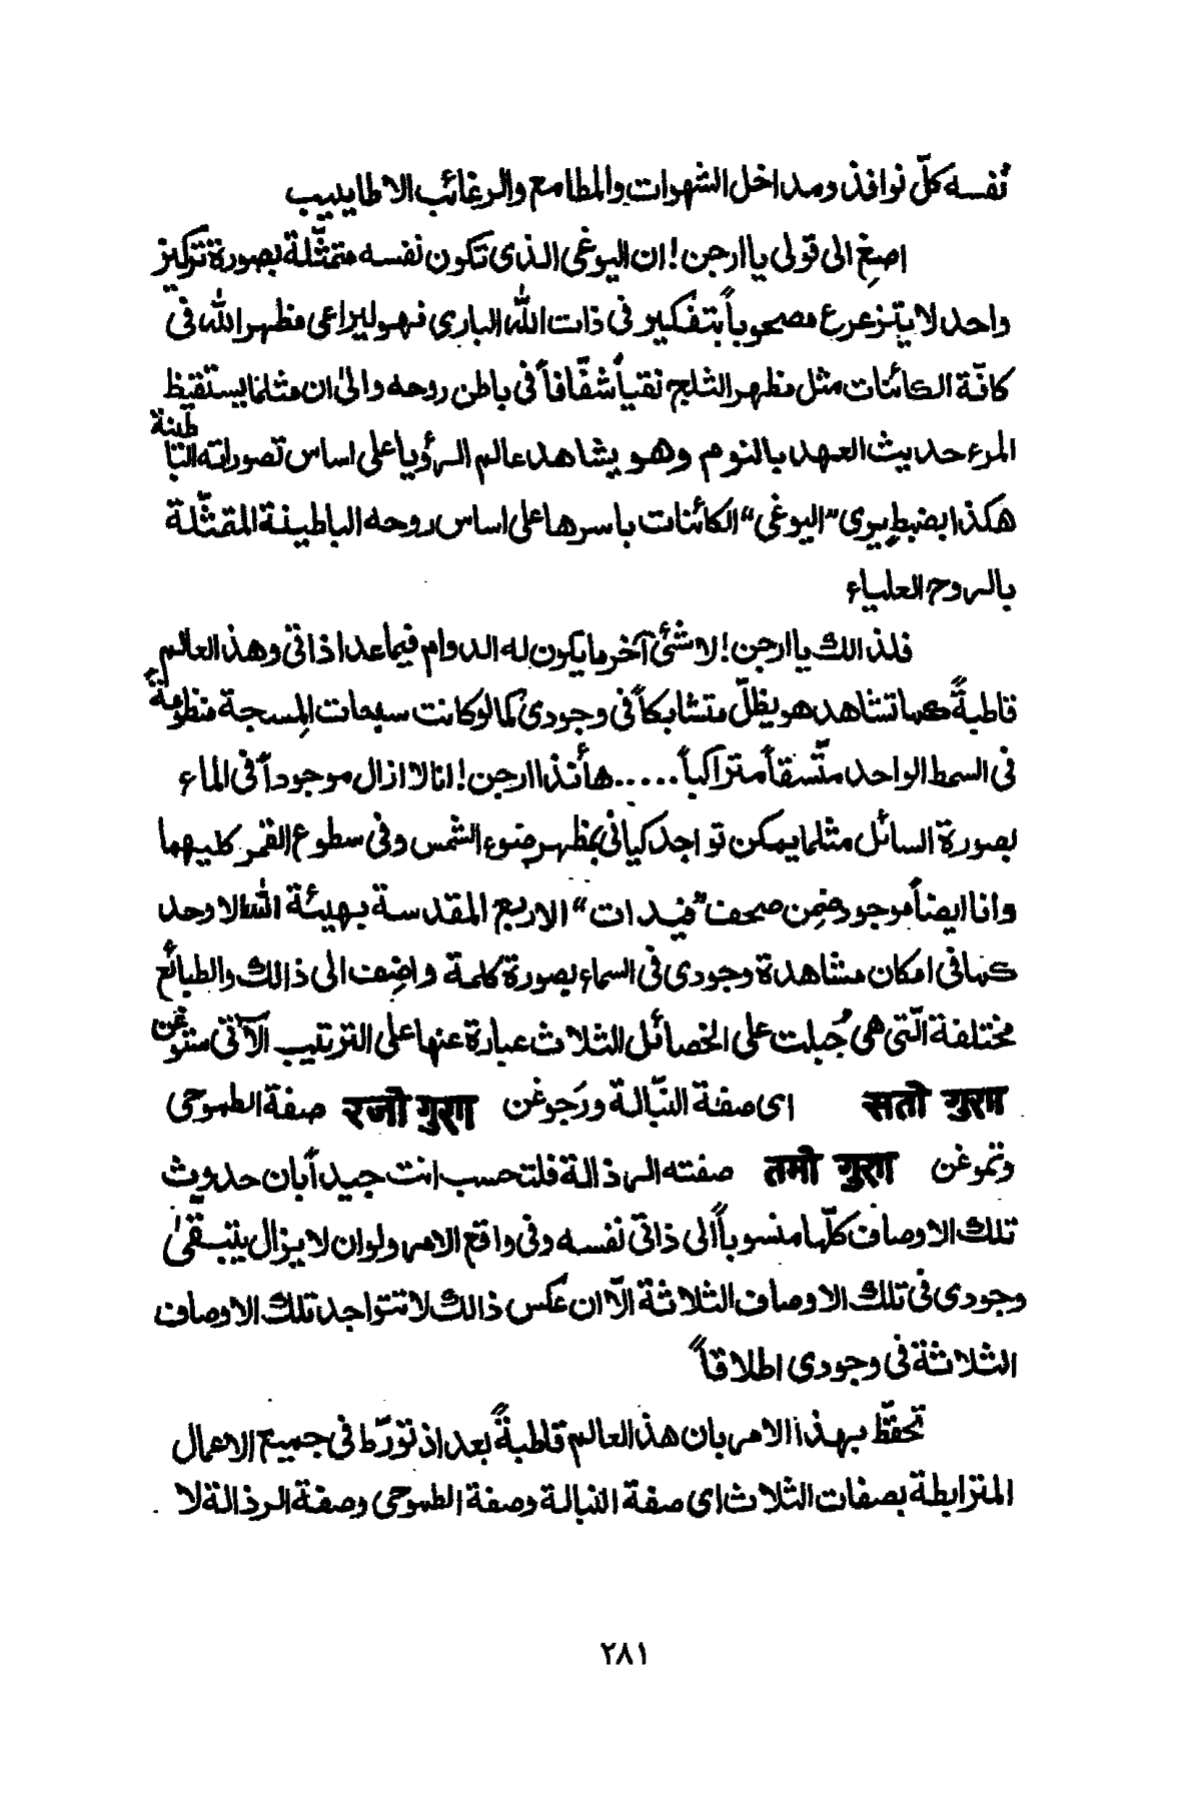 نفسه كلّ نوافذ ومداخل الشهوات والمطامع والرغائب الاطاييب
اصغِ الى قولى يا ارجن! ان اليوغى الذى تكون نفسه متمثّلة بصورة تركيز
واحد لا يتزعرع مصحوباً بتفكير فى ذات اللّٰه البارى فهو ليراعى مظهر اللّٰه فى
كافّة الكائنات مثل مظهر الثلج نقياً شفّافاً فى باطن روحه والىٰ ان مثلما يستقيظ
المرء حديث العهد بالنوم وهو يشاهد عالم الرؤيا على اساس تصوراته الباطينة
هكذا بضبط يرى "اليوغى" الكائنات باسرها على اساس روحه الباطينة المتمثّلة
بالروح العلياء
فلذالك يا ارجن! لا شئ آخر ما يكون له الدوام فيما عدا ذاتى وهذ العالم
قاطبةً كما تشاهد هو يظلّ متشابكاً فى وجودى كما لو كانت سبحات المِسبحة منظومة
فى السمط الواحد متّسقاً متراكباً ..... هأنذا ارجن! انا لا ازال موجوداً فى الماء
بصورة السائل مثلما يمكن تواجد كيانى بمظهر ضوء الشمس وفى سطوع القمر كليهما
وانا ايضاً موجود ضمن صحف "فيدات" الاربع المقدسة بهيئة اللّٰه الاوحد
كما فى امكان مشاهدة وجودى فى السماء بصورة كلمة واضِف الى ذالك والطبائع
مختلفة الّتى هى جُبلت على الخصائل الثلاث عبارة عنها على الترتيب الآتى ستوغن
सतो गुरा اى صفة النّبالة ورَجوغن रजो गुरा صفة الطموحى
وتموغن तमो गुरा صفته الرذالة فلتحسب انت جيداً بان حدوث
تلك الاوصاف كلّها منسوباً الى ذاتى نفسه وفى واقع الامر ولو ان لا يزال يتبقّىٰ
وجودى فى تلك الاوصاف الثلاثة الاّ ان عكس ذالك لا تتواجد تلك الاوصاف
الثلاثة فى وجودى اطلاقاً
تحفّظ بهذا الامر بان هذ العالم قاطبةً بعد اذ تورّط فى جميع الاعمال
المترابطة بصفات الثلاث اى صفة النبالة وصفة الطموحى وصفة الرذالة لا
٢٨١